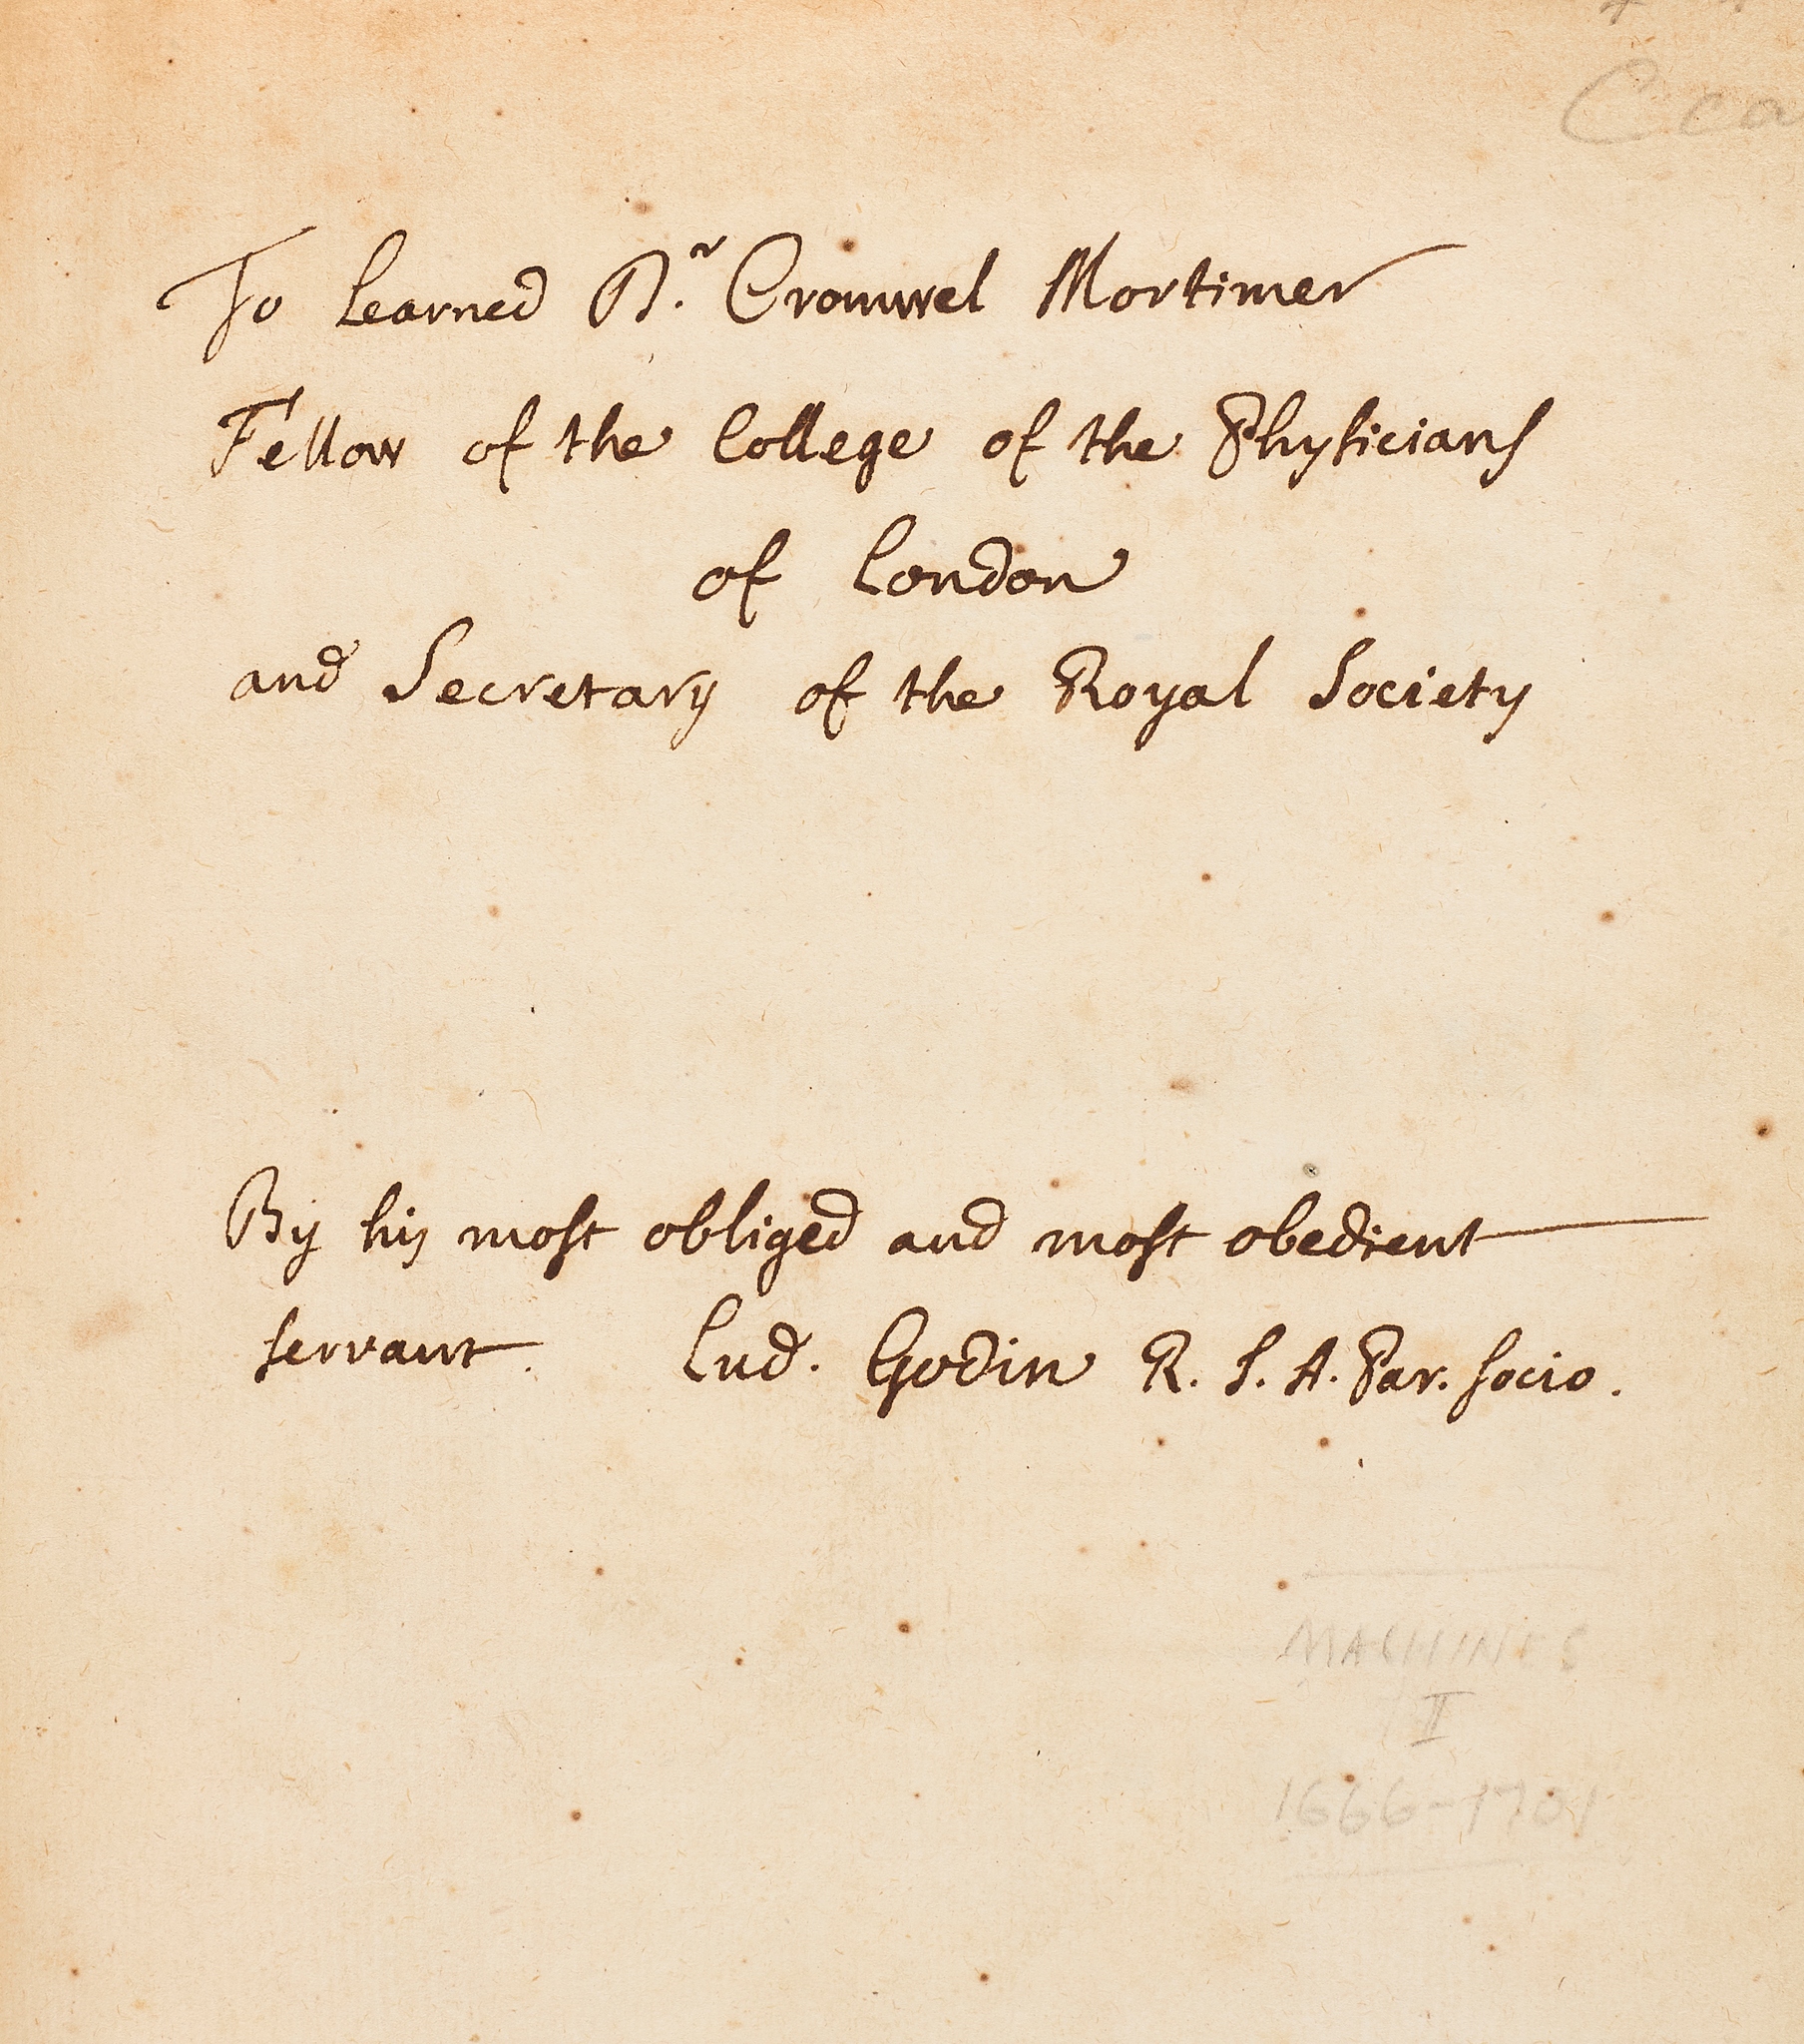 Cca
To Learned D.r Cromwel Mortimer
Fellow of the College of the Phyſicians
of London
and Secretary of the Royal Society
By his moſt obliged and moſt obedient
ſervant. Lud. Godin R. S. A. Par. ſocio.
MACHINES
II
1666-1701